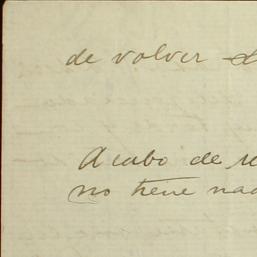 de volver
Acabo de
no tiene